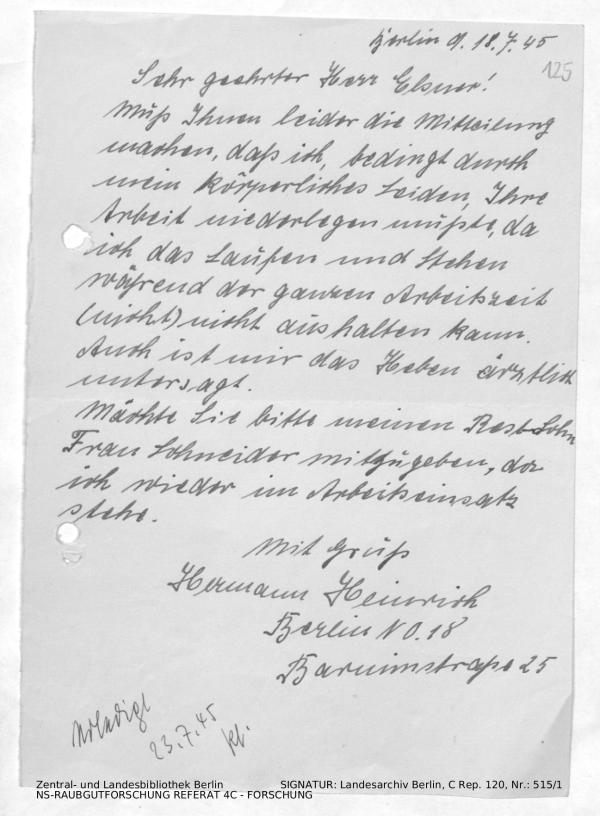 Berlin d. 18.7.45
125
Sehr geehrter Herr Elsner!
Muß Ihnen leider die Mitteilung
machen, daß ich, bedingt durch
mein körperliches Leiden, Ihre
Arbeit niederlegen mußte, da
ich das Laufen und Stehen
während der ganzen Arbeitszeit
(nicht) nicht aushalten kann.
Auch ist mir das Heben ärztlich
untersagt.
Möchte Sie bitte meinen Rest-Lohn
Frau Schneider mitzugeben, da
ich wieder im Arbeitseinsatz
stehe.
Mit Gruß
Hermann Heinrich
Berlin NO.18
Barnimstraße 25
Erledigt
23.7.45
Zentral- und Landesbibliothek Berlin SIGNATUR: Landesarchiv Berlin, C Rep. 120, Nr.: 515/1
NS-RAUBGUTFORSCHUNG REFERAT 4C - FORSCHUNG